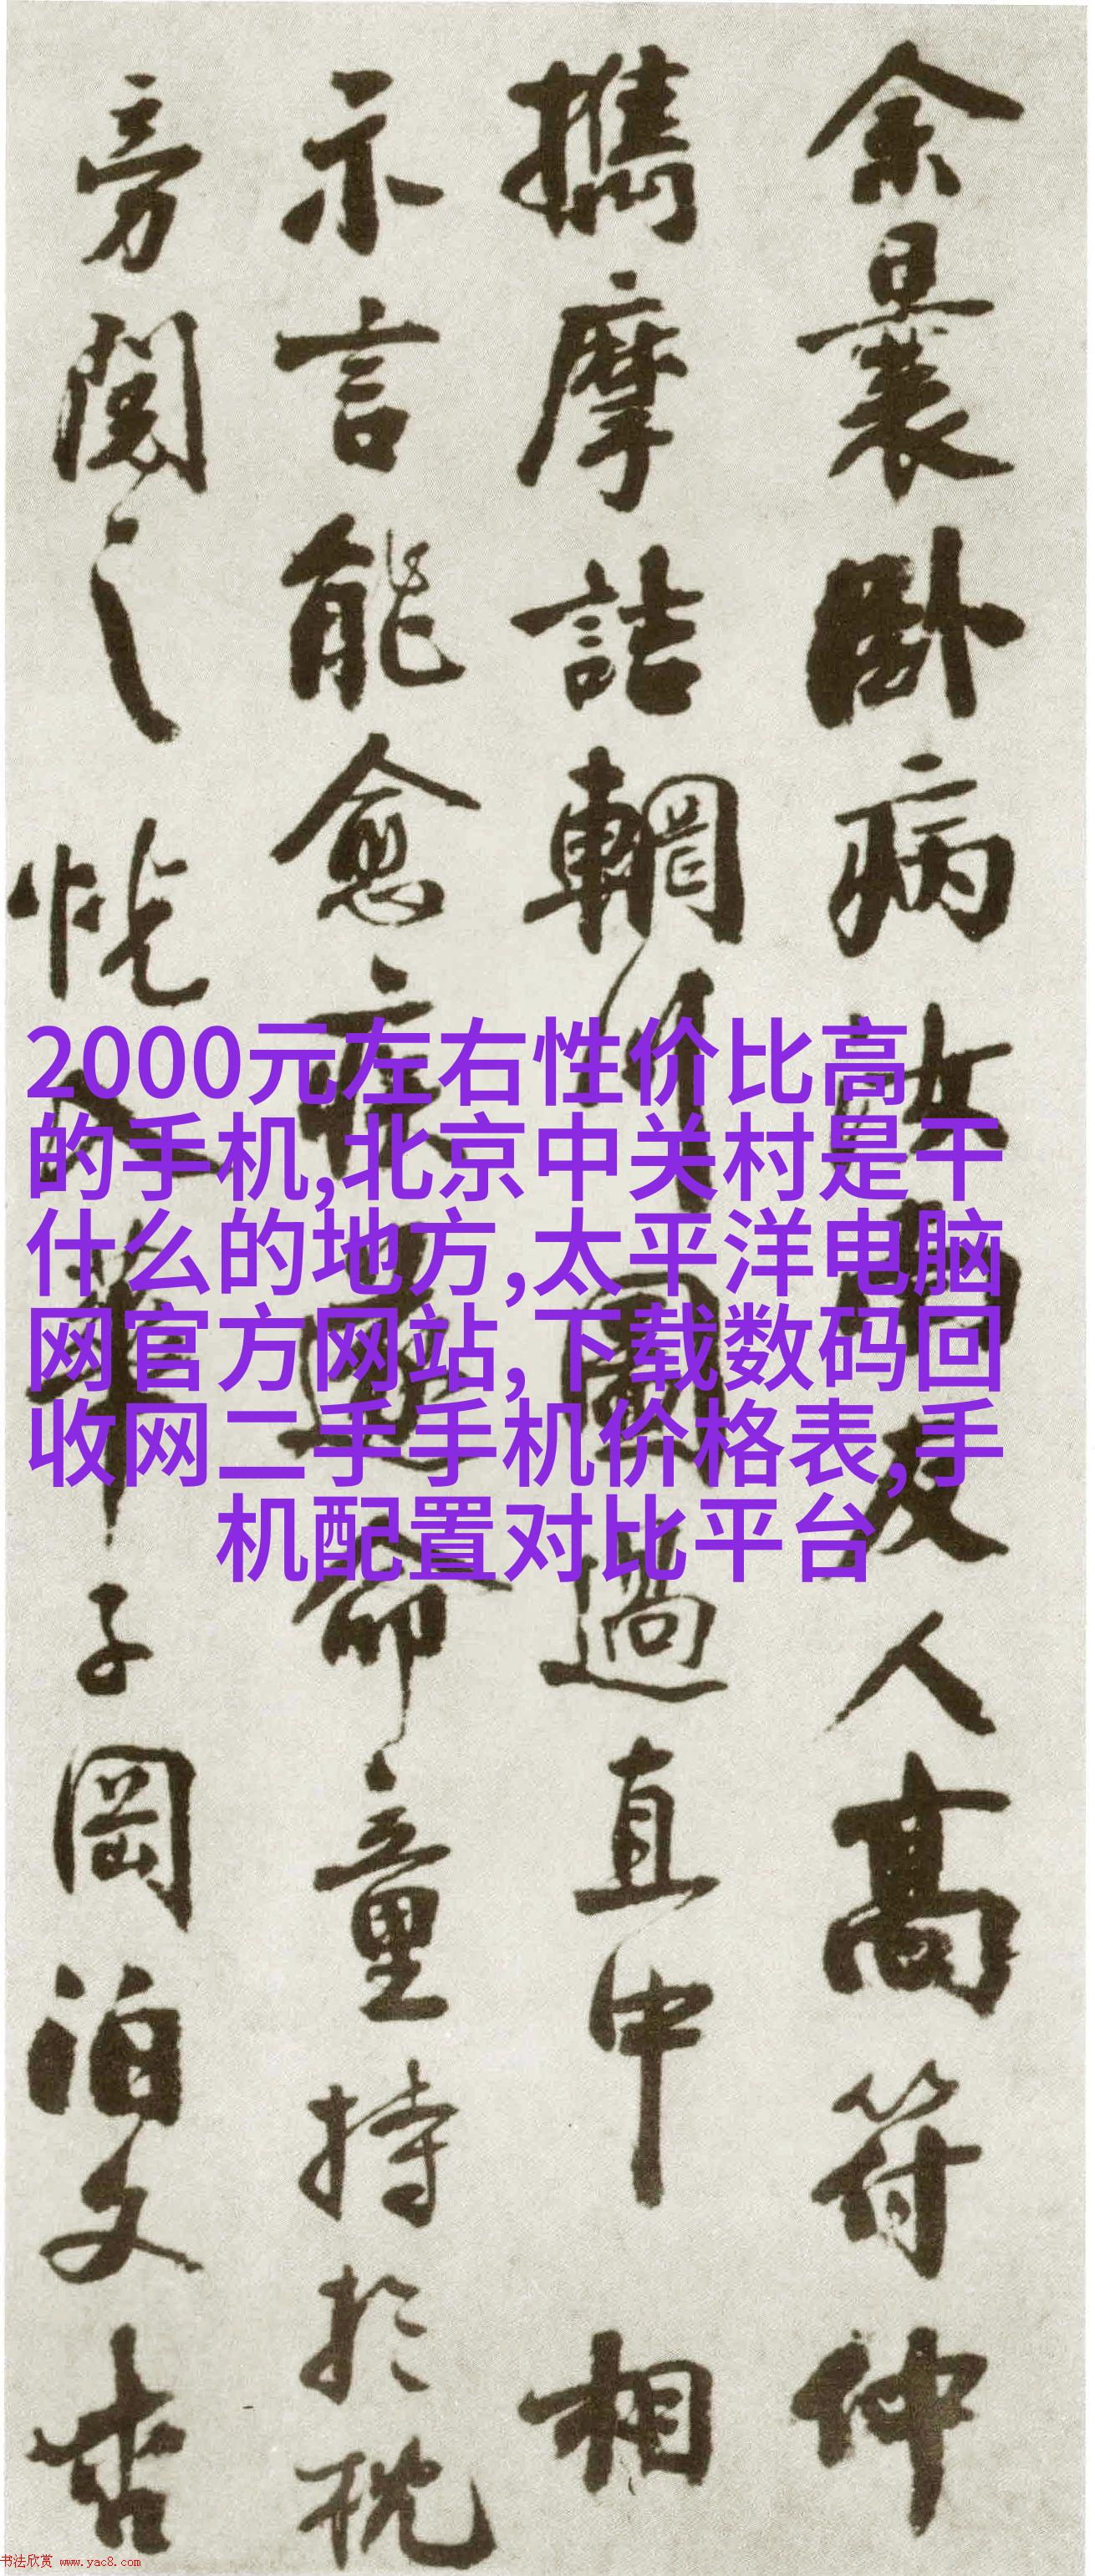 余曩卧病汝陽友人高符仲
攜摩詰輞川圖過直中相
示言能愈疾遂命童持於枕
旁閱之恍入華子岡泊文杏
2000元左右性价比高
的手机,北京中关村是干
什么的地方,太平洋电脑
网官方网站,下载数码回
收网二手手机价格表,手
机配置对比平台
书法欣赏 www.yac8.com